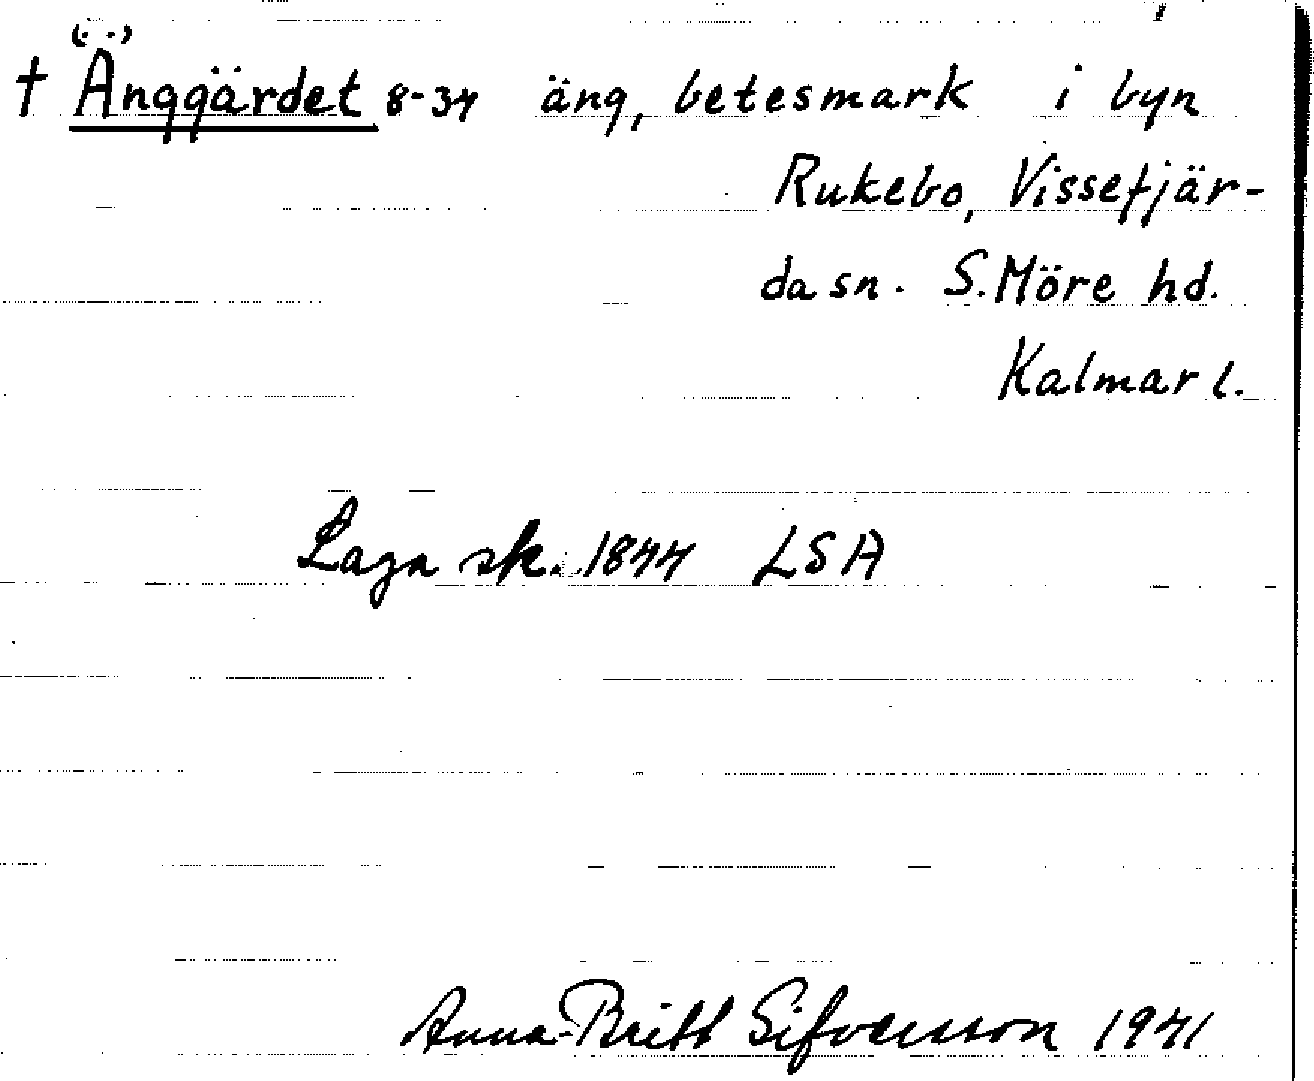 † Änggärdet 8-34 äng, betesmark i byn
Rukebo, Vissefjär-
da sn. S. Möre hd.
Kalmar l.
Laga sk. 1844 LSA
Anna-Britt Sifversson 1941